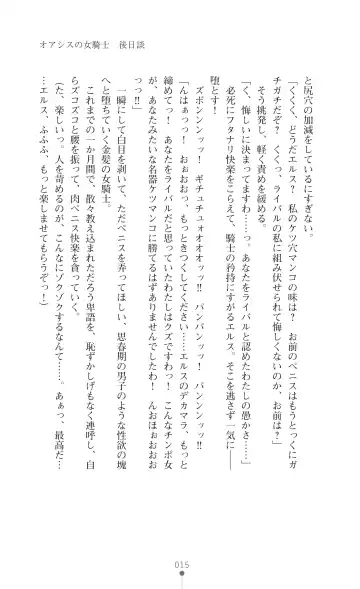 オアシスの女騎士　後日談
と尻穴の加減をしているにすぎない。
「くくく、どうだエルス？　私のケツ穴マンコの味は？　お前のペニスはもうとっくにガ
チガチだぞ？　くくっ、ライバルの私に組み伏せられて悔しくないのか、お前は？」
そう挑発し、軽く責めを緩める。
「く、悔しいに決まってますわ……っ。あなたをライバルと認めたわたしの愚かさ……」
必死にフタナリ快楽をこらえて、騎士の矜持にすがるエルス。そこを逃さず一気に――
堕とす！
ズボンンッッ！　ギチュチュォオオオッッ‼　パンパンッッ！　パンンンッッ‼
「んはぁっっ！　おぉおおっ、もっときつくしてください……エルスのデカマラ、もっと
締めてっ！　あなたをライバルだと思っていたわたしはクズですわっ！　こんなチンポ女
が、あなたみたいな名器ケツマンコに勝てるはずありませんでしたわ！　んおほぉおおお
っっ‼」
一瞬にして白目を剥いて、ただペニスを弄ってほしい、思春期の男子のような性欲の塊
へと堕ちていく金髪の女騎士。
これまでの一か月間で、散々教え込まれただろう卑語を、恥ずかしげもなく連呼し、自
らズコズコと腰を振って、肉ペニス快楽を貪っていく。
（た、楽しいっ。人を苛めるのが、こんなにゾクゾクするなんて……。あぁっ、最高だ…
…エルス、ふふふ、もっと楽しませてもらうぞ！）
015